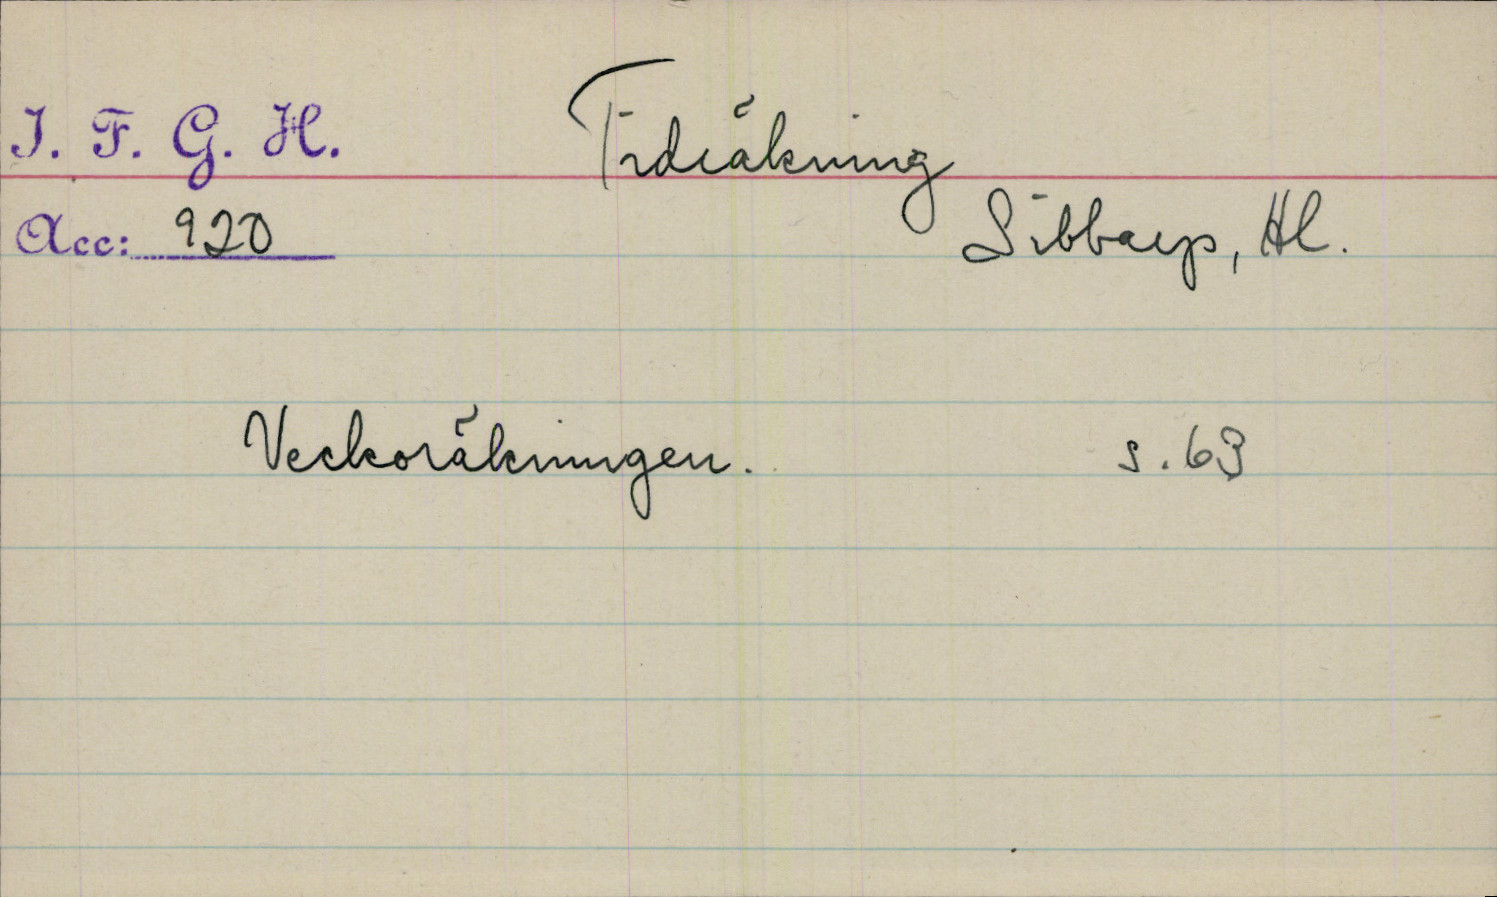 I. F. G. H.
Tidräkning
Acc: 920
Sibbarp, Hl.
Veckoräkningen. s. 63